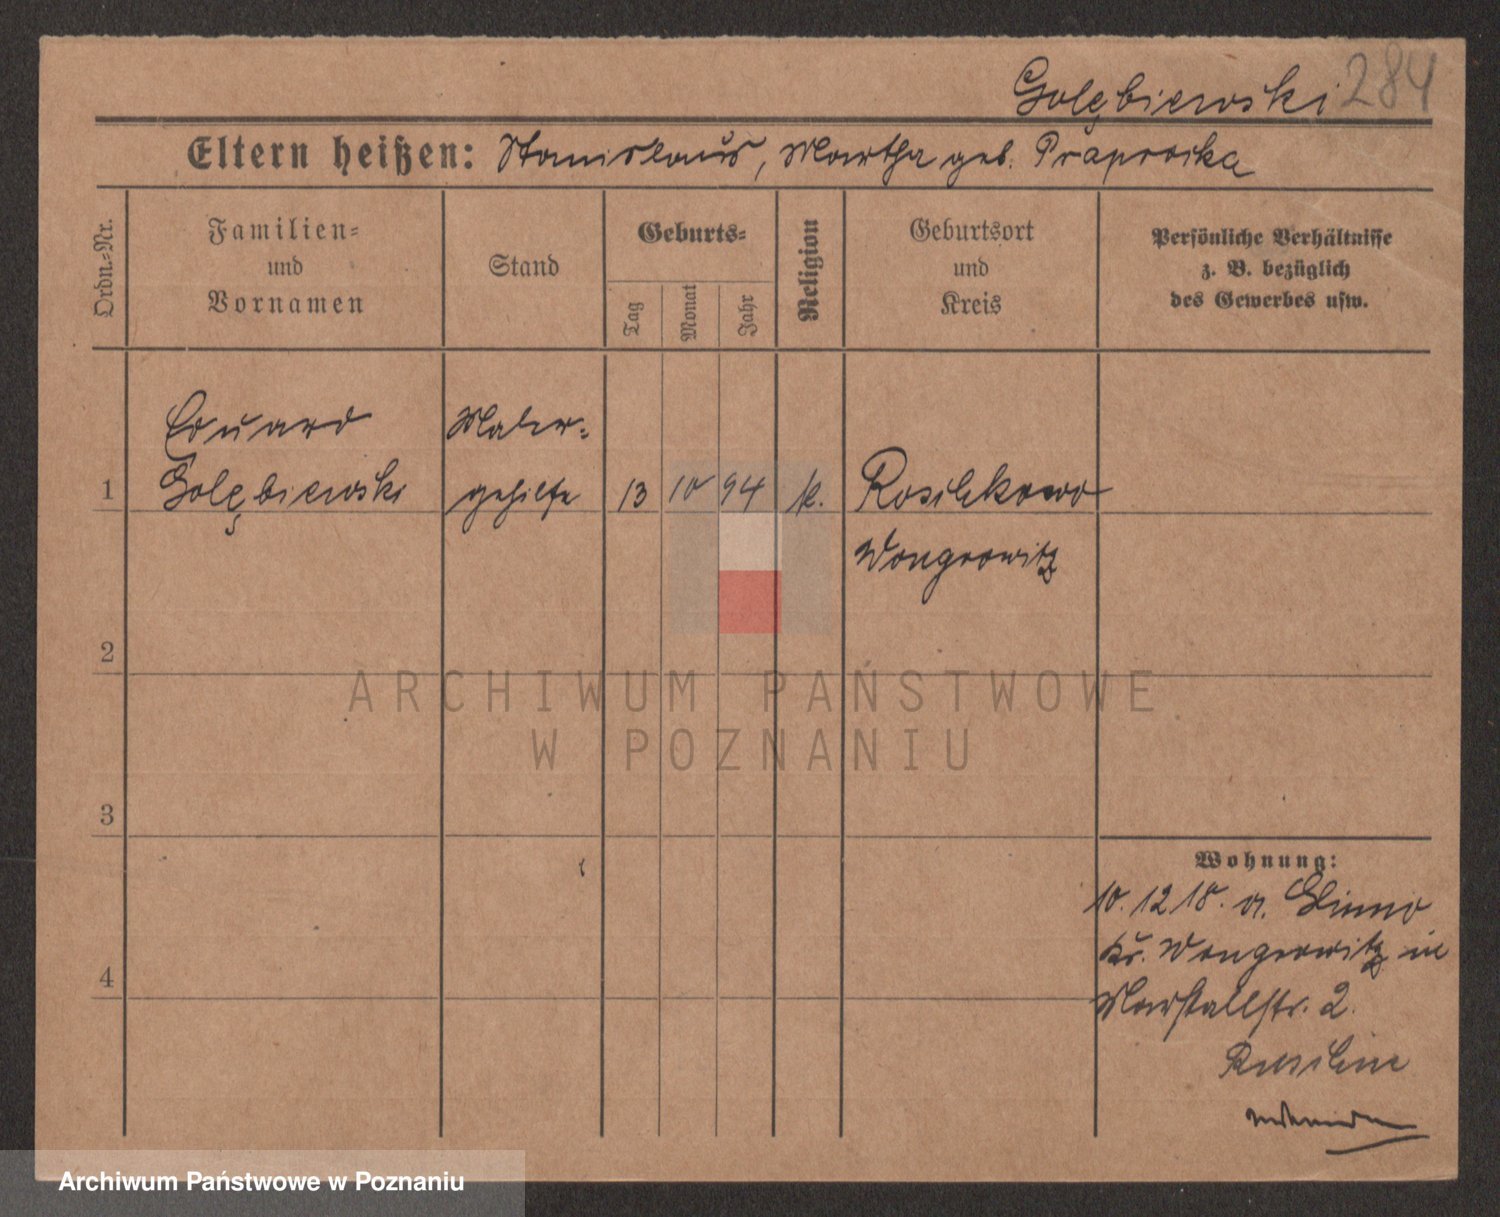 Golębiewski 284
Eltern heißen: Stanislaus, Martha geb.
Ordn.-Nr.
Familien-
und
Vornamen
Stand
Geburts-
Tag
Monat
Jahr
Religion
Geburtsort
und
Kreis
Persönliche Verhältnisse
z. B. bezüglich
des Gewerbes usw.
Eduard
Maler-
1 Golębiewski gehilfe 13 10 94 k.
Wongrowitz
2
3
4
Wohnung:
10. 12 18. a.
Kr. Wongrowitz in
Marstallstr. 2.
ARCHIWUM PAŃSTWOWE
W POZNANIU
Archiwum Państwowe w Poznaniu